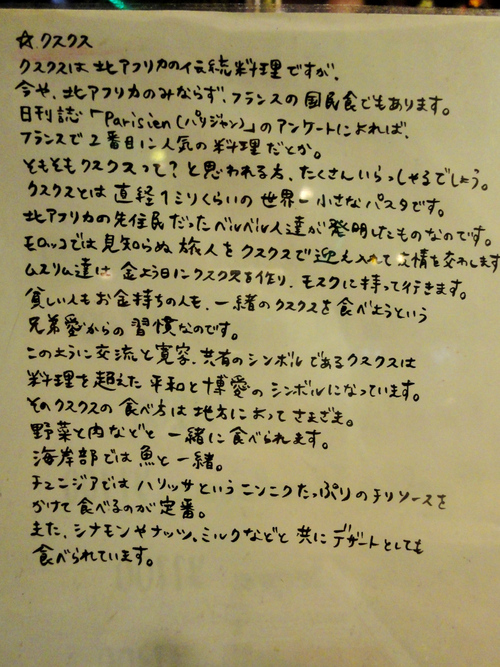 ☆クスクス
クスクスは北アフリカの伝統料理ですが、
今や、北アフリカのみならず、フランスの国民食でもあります。
日刊誌「Parisien(パリジャン)」のアンケートによれば、
フランスで2番目に人気の料理だとか。
そもそもクスクスって?と思われる方、たくさんいらっしゃるでしょう。
クスクスとは直経1ミリくらいの世界一小さなパスタです。
北アフリカの先住民だったベルベル人達が発明したものなのです。
モロッコでは見知らぬ旅人をクスクスで迎え入れて友情を交わします
ムスリム達は金よう日にクスクスを作り、モスクに持って行きます。
貧しい人もお金持ちの人も、一緒のクスクスを食べようという
兄弟愛からの習慣なのです。
このように交流と寛容、共有のシンボルであるクスクスは
料理を超えた平和と博愛のシンボルになっています。
そのクスクスの食べ方は地方によってさまざま。
野菜と肉などと一緒に食べられます。
海岸部では魚と一緒。
チュニジアではハリッサというニンニクたっぷりのチリソースを
かけて食べるのが定番。
また、シナモンやナッツ、ミルクなどと共にデザートとしても
食べられています。